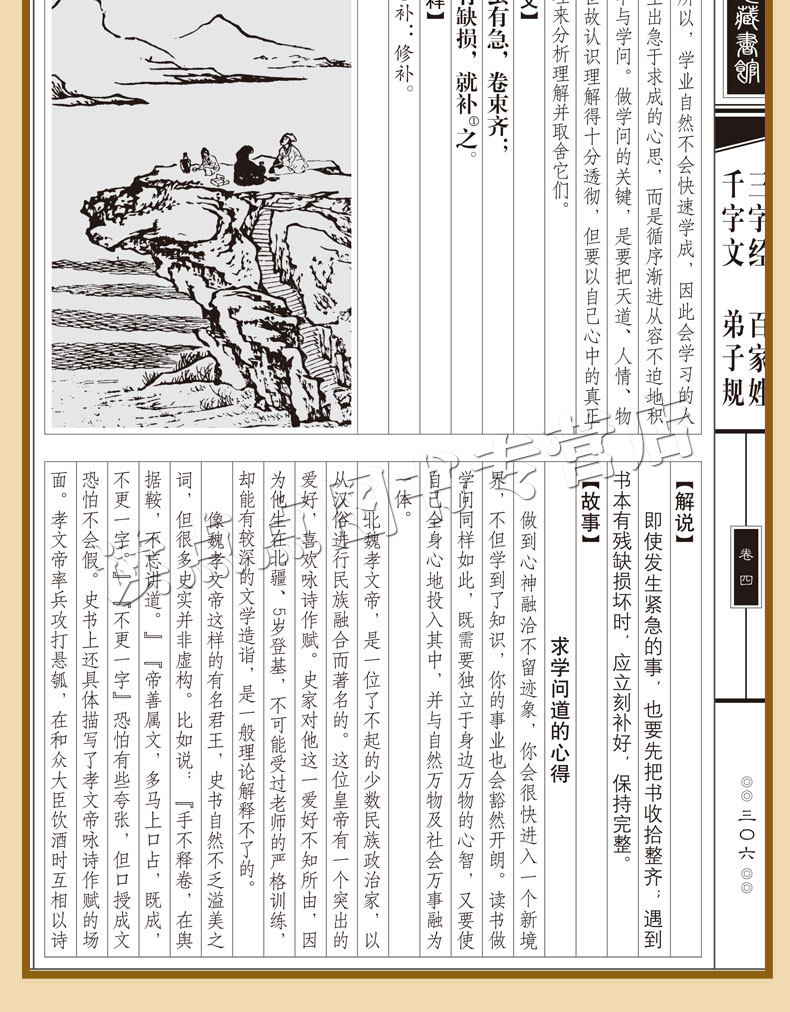 藏書館
三字经 百家姓
千字文 弟子规
卷四
三〇六
所以，学业自然不会快速学成，因此会学习的人
生出急于求成的心思，而是循序渐进从容不迫地积
与学问。做学问的关键，是要把天道、人情、物
世故认识理解得十分透彻，但要以自己心中的真正
来分析理解并取舍它们。
文】
有急，卷束齐；
有缺损，就补①之。
释】
补：修补。
【解说】
即使发生紧急的事，也要先把书收拾整齐；遇到
书本有残缺损坏时，应立刻补好，保持完整。
【故事】
求学问道的心得
做到心神融洽不留迹象，你会很快进入一个新境
界，不但学到了知识，你的事业也会豁然开朗。读书做
学问同样如此，既需要独立于身边万物的心智，又要使
自己全身心地投入其中，并与自然万物及社会万事融为
一体。
北魏孝文帝，是一位了不起的少数民族政治家，以
从汉俗进行民族融合而著名的。这位皇帝有一个突出的
爱好，喜欢咏诗作赋。史家对他这一爱好不知所由，因
为他生在北疆、5岁登基，不可能受过老师的严格训练，
却能有较深的文学造诣，是一般理论解释不了的。
像魏孝文帝这样的有名君王，史书自然不乏溢美之
词，但很多史实并非虚构。比如说：『手不释卷，在舆
据鞍，不忘讲道。』『帝善属文，多马上口占，既成，
不更一字。』『不更一字』恐怕有些夸张，但口授成文
恐怕不会假。史书上还具体描写了孝文帝咏诗作赋的场
面。孝文帝率兵攻打悬瓠，在和众大臣饮酒时互相以诗
点庐图书专营店